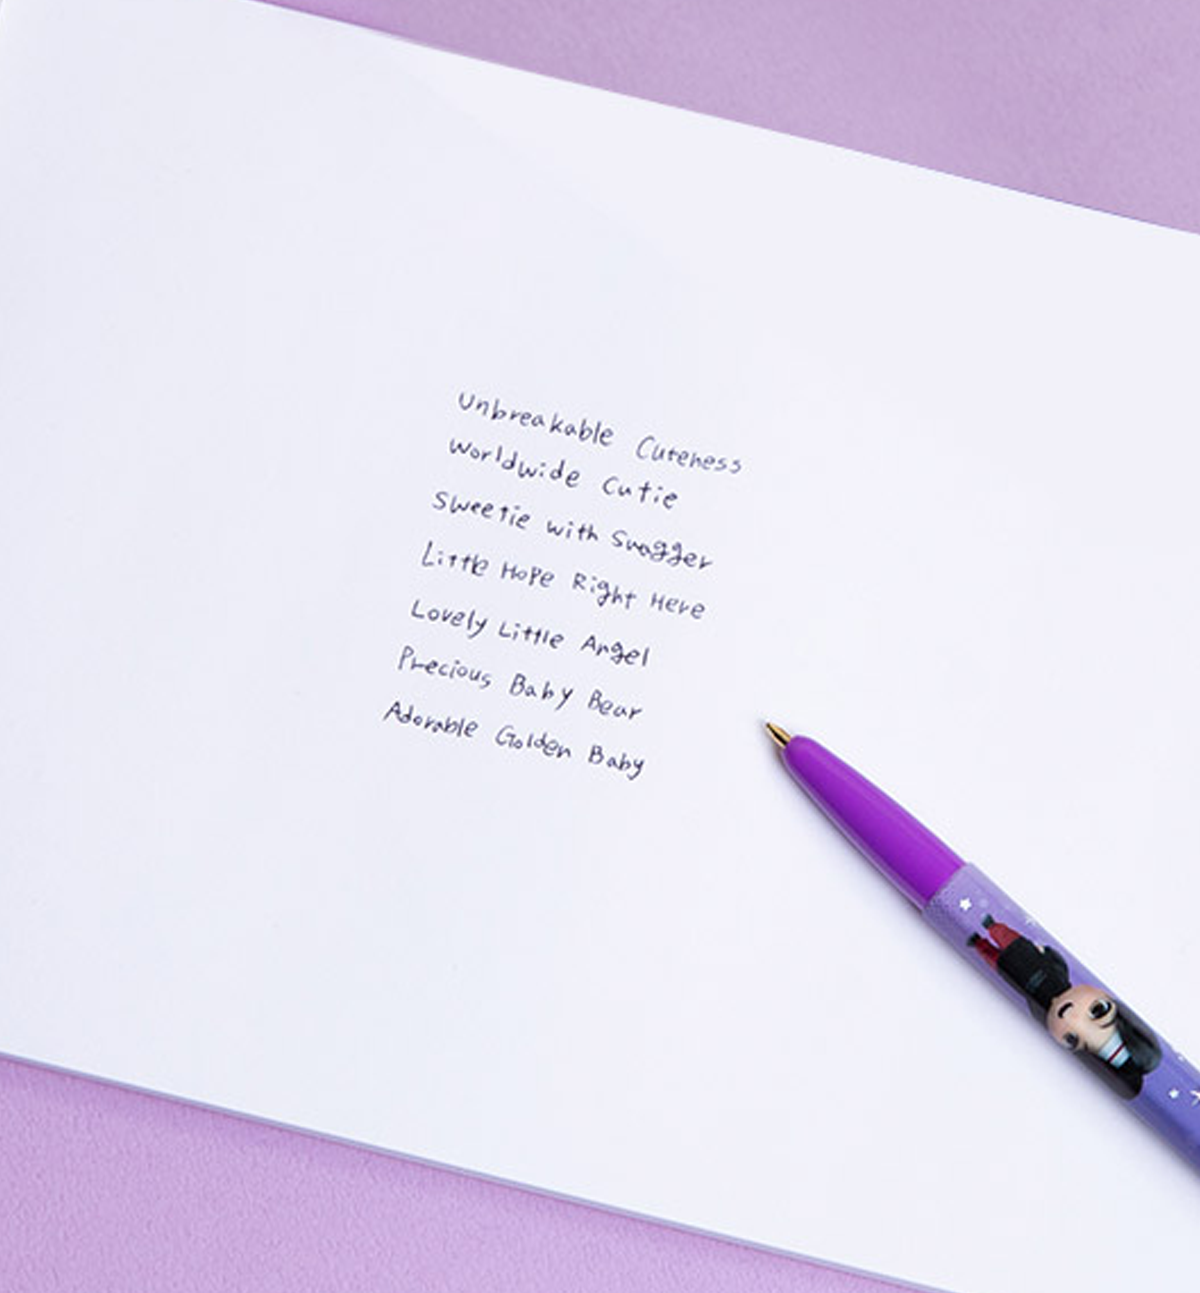 Unbreakable Cuteness
Worldwide Cutie
Sweetie with Swagger
Little Hope Right Here
Lovely Little Angel
Precious Baby Bear
Adorable Golden Baby